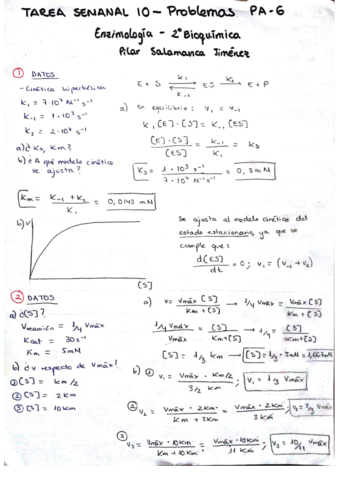 TAREA SEMANAL 10 - Problemas PA-6
Enzimología - 2º Bioquímica
Pilar Salamanca Jiménez
① DATOS
- Cinética hiperbólica
K₁ = 7·10⁷ M⁻¹ s⁻¹
K₋₁ = 1·10³ s⁻¹
K₂ = 2·10⁴ s⁻¹
a) ¿Ks, Km?
b) ¿A qué modelo cinético se ajusta?
E + S ⇌ ES → E + P
a) En equilibrio: v₁ = v₋₁
K₁[E]·[S] = K₋₁[ES]
[E]·[S] / [ES] = K₋₁ / K₁ = Ks
Km = K₋₁ + K₂ / K₁
b) V
[S]
Se ajusta al modelo cinético del
estado estacionario, ya que se
cumple que:
d[ES] / dt = 0; v₁ = (v₋₁ + v₂)
② DATOS
a) ¿[S]?
Vreacción = 1/4 Vmáx
Kcat = 30 s⁻¹
Km = 5mM
b) ¿v respecto de Vmáx?
① [S] = Km/2
② [S] = 2Km
③ [S] = 10Km
a) v = Vmáx [S] / Km + [S] → 1/4 Vmáx = Vmáx [S] / Km + [S]
1/4 Vmáx / Vmáx = [S] / Km + [S] → 1/4 = [S] / Km + [S]
[S] = 1/3 Km → [S] = 1/3 · 5mM = 1,667mM
b) ① v₁ = Vmáx · Km/2 / 3/2 Km; v₁ = 1/3 Vmáx
② v₂ = Vmáx · 2Km / Km + 2Km = Vmáx · 2Km / 3Km; v₂ = 2/3 Vmáx
③ v₃ = Vmáx · 10Km / Km + 10Km = Vmáx · 10Km / 11Km; v₃ = 10/11 Vmáx